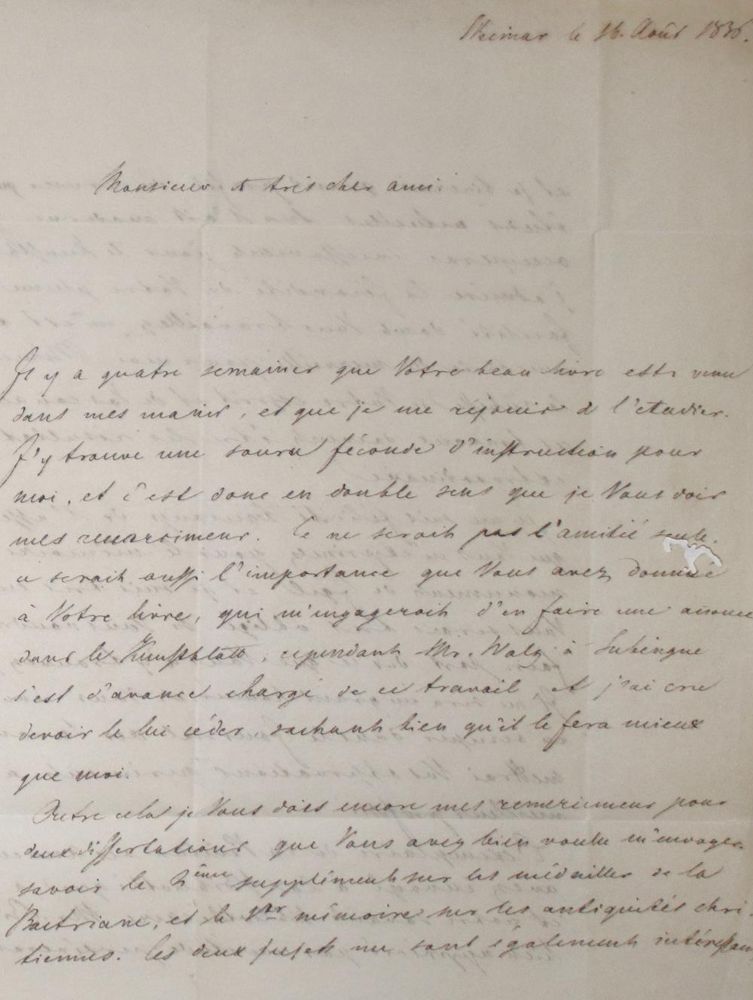 Weimar le 16. Août 1836.
Monsieur et très cher ami
Il y a quatre semaines que Votre beau livre est venu
dans mes mains, et que je me rejouis à l'étudier.
J'y trouve une source féconde d'instruction pour
moi, et c'est donc en double sens que je Vous dois
mes remercimens. Ce ne serait pas l'amitié seule,
ce serait aussi l'importance que Vous avez donnée
à Votre livre, qui m'engageroit d'en faire une annonce
dans le Kunstblatt, cependant Mr. Walz à Tubingue
s'est d'avance chargé de ce travail, et j'ai cru
devoir le lui céder, sachant bien qu'il le fera mieux
que moi.
Outre cela je Vous dois encore mes remercimens pour
deux dissertations que Vous avez bien voulu m'envoyer
savoir le 2ème supplément sur les médailles de la
Bactriane, et le mémoire sur les antiquités chré
tiennes. les deux sujets me sont également intéressan